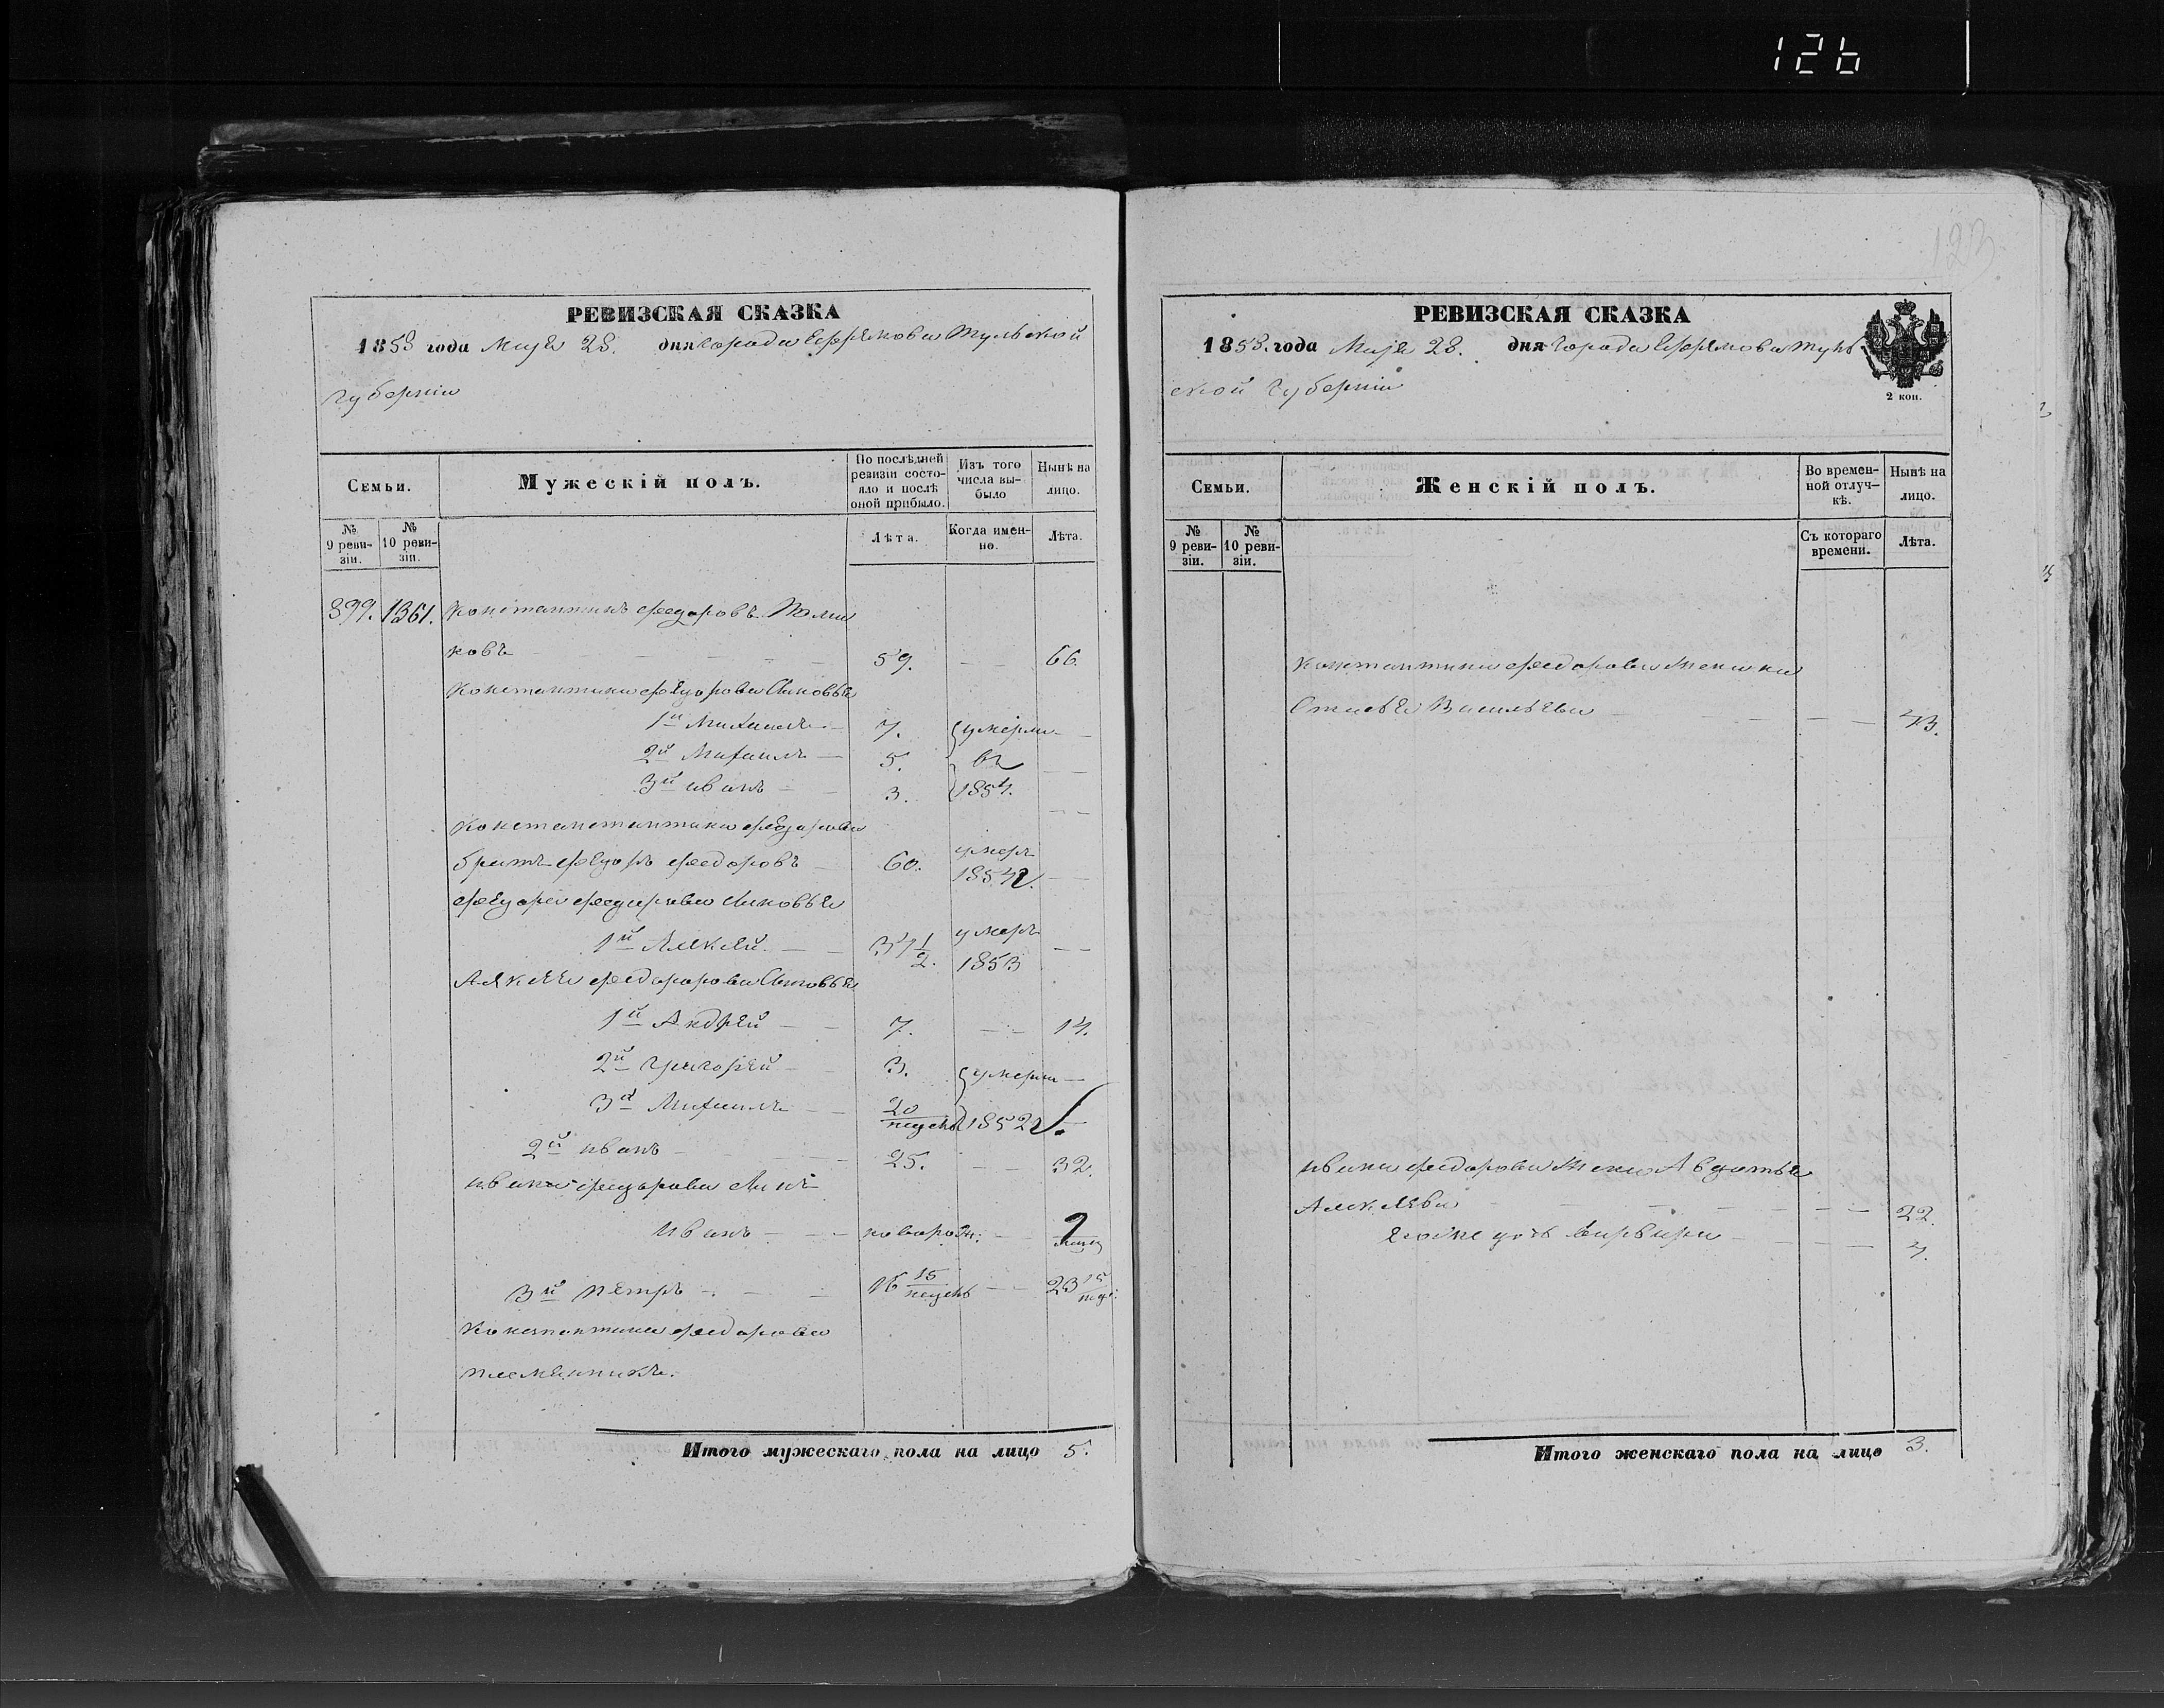 126
123
РЕВИЗСКАЯ СКАЗКА
1858 года Мая 28. дня города Ефремова Тульской
губернiи
Семьи.
Мужескiй полъ.
По послѣдней ревизiи состояло и послѣ оной прибыло.
Изъ того числа выбыло
Нынѣ на лицо.
№ 9 ревизiи.
№ 10 ревизiи.
Лѣта.
Когда именно.
Лѣта.
899. 1361. Константинъ Федоровъ
ковъ 59. 66.
Константина Федорова Сыновья
1й Михаилъ 7. умерли
2й Михаилъ 5. въ
3й иванъ 3. 1854.
Федорова
братъ Федоръ Федоровъ 60. умеръ 1854
Федора Федорова Сыновья
1й Алексей 37 1/2. умеръ 1853
Алексея Федорова Сыновья
1й Андрей 7. 14.
2й Григорей 3. умерли
3й Михаилъ 20 недель 1852
2й иванъ 25. 32.
ивана Федорова Сынъ
иванъ новорож:
3й петръ 16 15 недель 23 15 нед:
Константина Федорова
племянникъ.
Итого мужескаго пола на лицо 5.
РЕВИЗСКАЯ СКАЗКА
1858. года Мая 28. дня города Ефремова Туль
ской губернiи
2 коп.
Семьи.
Женскiй полъ.
Во временной отлучкѣ.
Нынѣ на лицо.
№ 9 ревизiи.
№ 10 ревизiи.
Съ котораго времени.
Лѣта.
Константина Федорова Жена
Васильева 43.
ивана Федорова Жена Авдотья
Алексеева 22.
его же дочь варвара 4.
Итого женскаго пола на лицо 3.